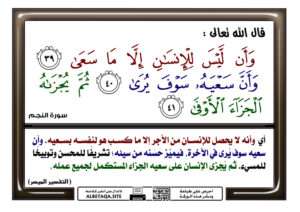 قال الله تعالى :
وَأَن لَّيْسَ لِلْإِنسَٰنِ إِلَّا مَا سَعَىٰ ٣٩
وَأَنَّ سَعْيَهُۥ سَوْفَ يُرَىٰ ٤٠ ثُمَّ يُجْزَىٰهُ
ٱلْجَزَآءَ ٱلْأَوْفَىٰ ٤١
سورة النجم
أي وأنه لا يحصل للإنسان من الأجر إلا ما كسب هو لنفسه بسعيه. وأن
سعيه سوف يُرى في الآخرة، فيميَّز حَسَنه من سيئه؛ تشريفًا للمحسن وتوبيخًا
للمسيء. ثم يُجزى الإنسان على سعيه الجزاء المستكمل لجميع عمله.
( التفسير الميسر )
ALBETAQA.SITE